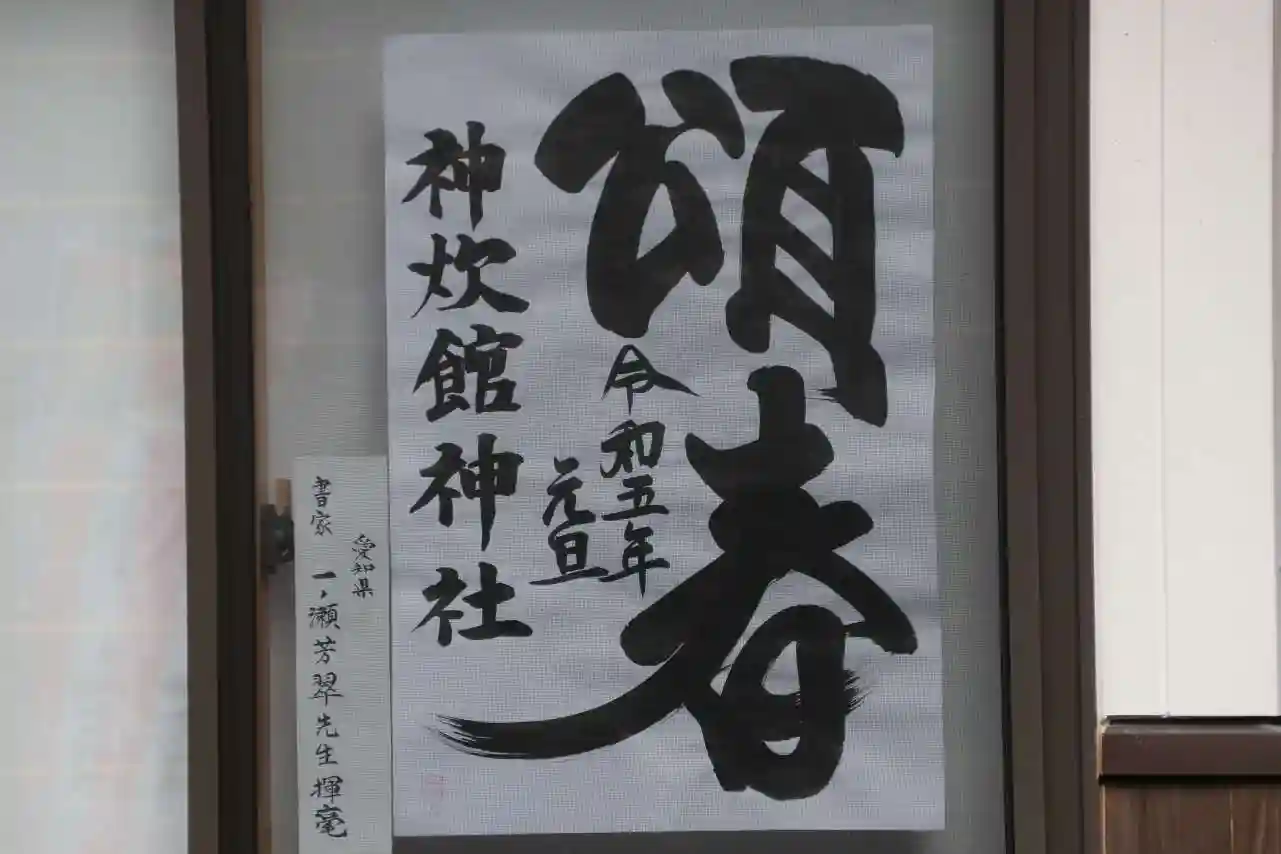 頌春
令和五年
元旦
神炊館神社
愛知県
書家 一ノ瀬芳翠先生揮毫